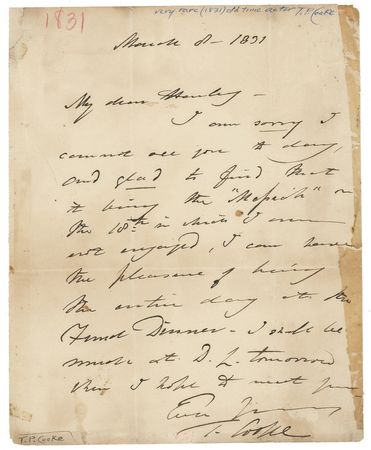 1831
very rare (1831) old time actor T. P. Cooke
March 8 - 1831
My dear
I am sorry I
cannot see you to day,
and glad to find that
it being the "Messiah" on
the 18th in which I am
not engaged, I can have
the pleasure of being
the entire day at the
Fund Dinner - I shall be
much at D. L. tomorrow
when I hope to meet you
Ever Yours
T. Cooke
T. P. Cooke